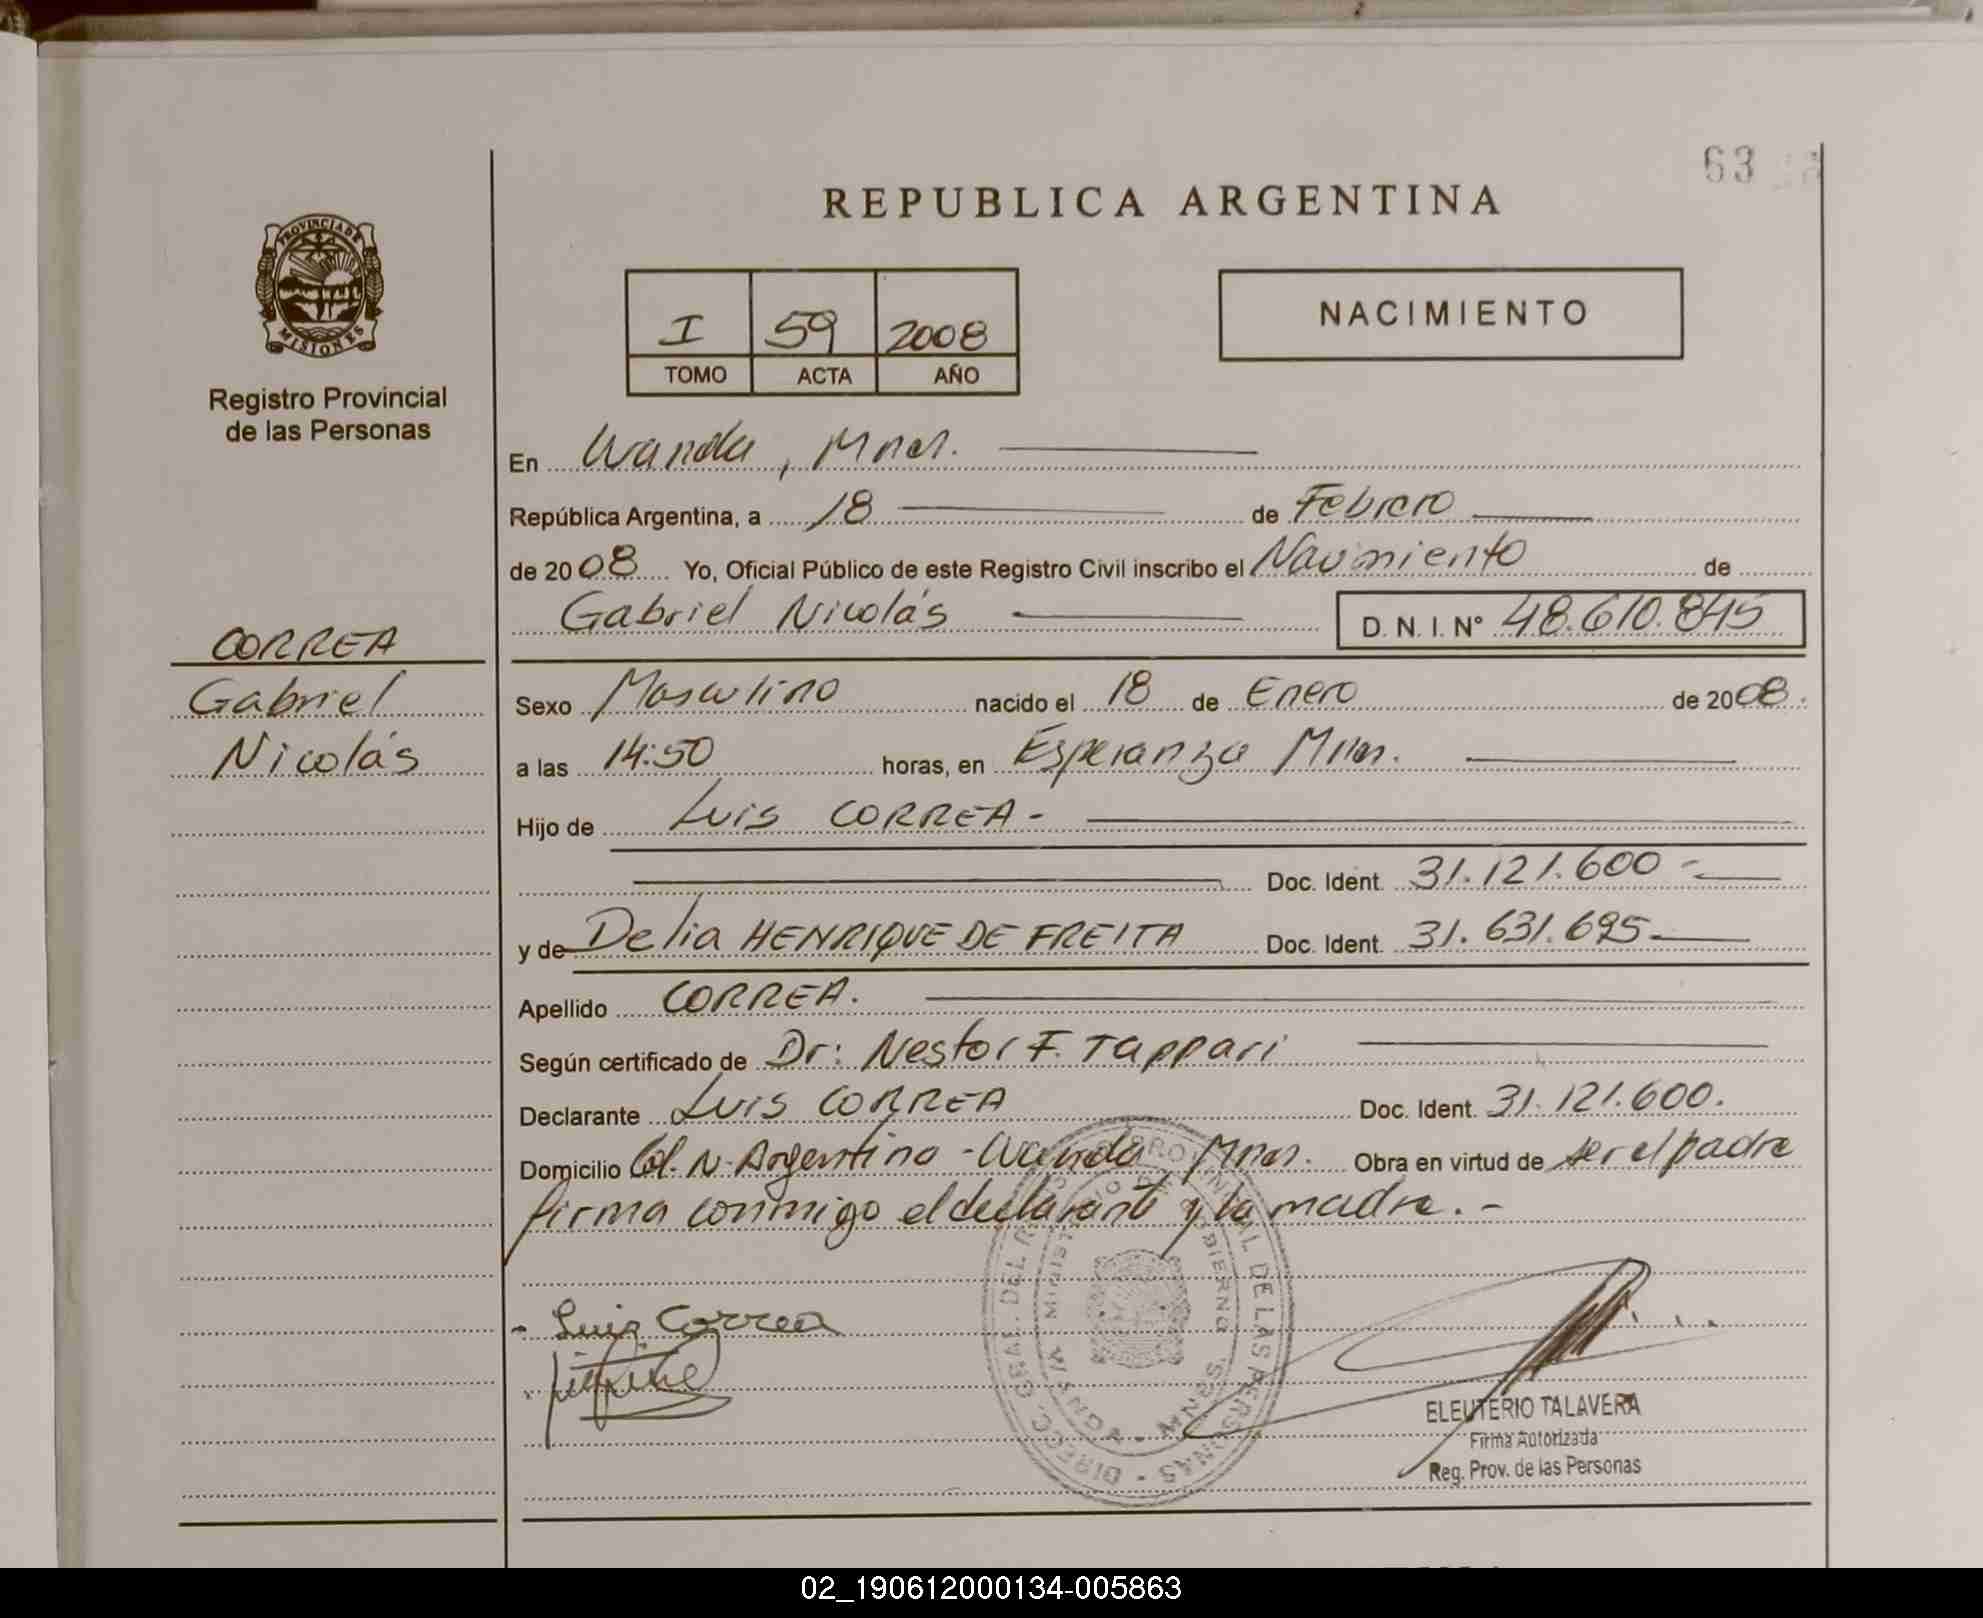 63
REPUBLICA ARGENTINA
PROVINCIA DE
MISIONES
Registro Provincial
de las Personas
I 59 2008
TOMO ACTA AÑO
NACIMIENTO
En Wanda, Mnes.
República Argentina, a 18 de Febrero
de 2008 Yo, Oficial Público de este Registro Civil inscribo el Nacimiento de
Gabriel Nicolás D. N. I. Nº 48.610.845
CORREA
Gabriel
Nicolás
Sexo Masculino nacido el 18 de Enero de 2008.
a las 14:50 horas, en Esperanza Mnes.
Hijo de Luis CORREA-
Doc. Ident. 31.121.600-
y de Delia HENRIQUE DE FREITA Doc. Ident. 31.631.695
Apellido CORREA.
Según certificado de Dr: Nestor F. Tappari
Declarante Luis CORREA Doc. Ident. 31.121.600.
Domicilio Col. N. Argentina - Wanda, Mnes. Obra en virtud de ser el padre
firma conmigo el declarante y la madre.-
DIRECC. GRAL. DEL REGISTRO PROVINCIAL DE LAS PERSONAS
MINISTERIO DE GOBIERNO
- Luis Correa
ELEUTERIO TALAVERA
Firma Autorizada
Reg. Prov. de las Personas
02_190612000134-005863